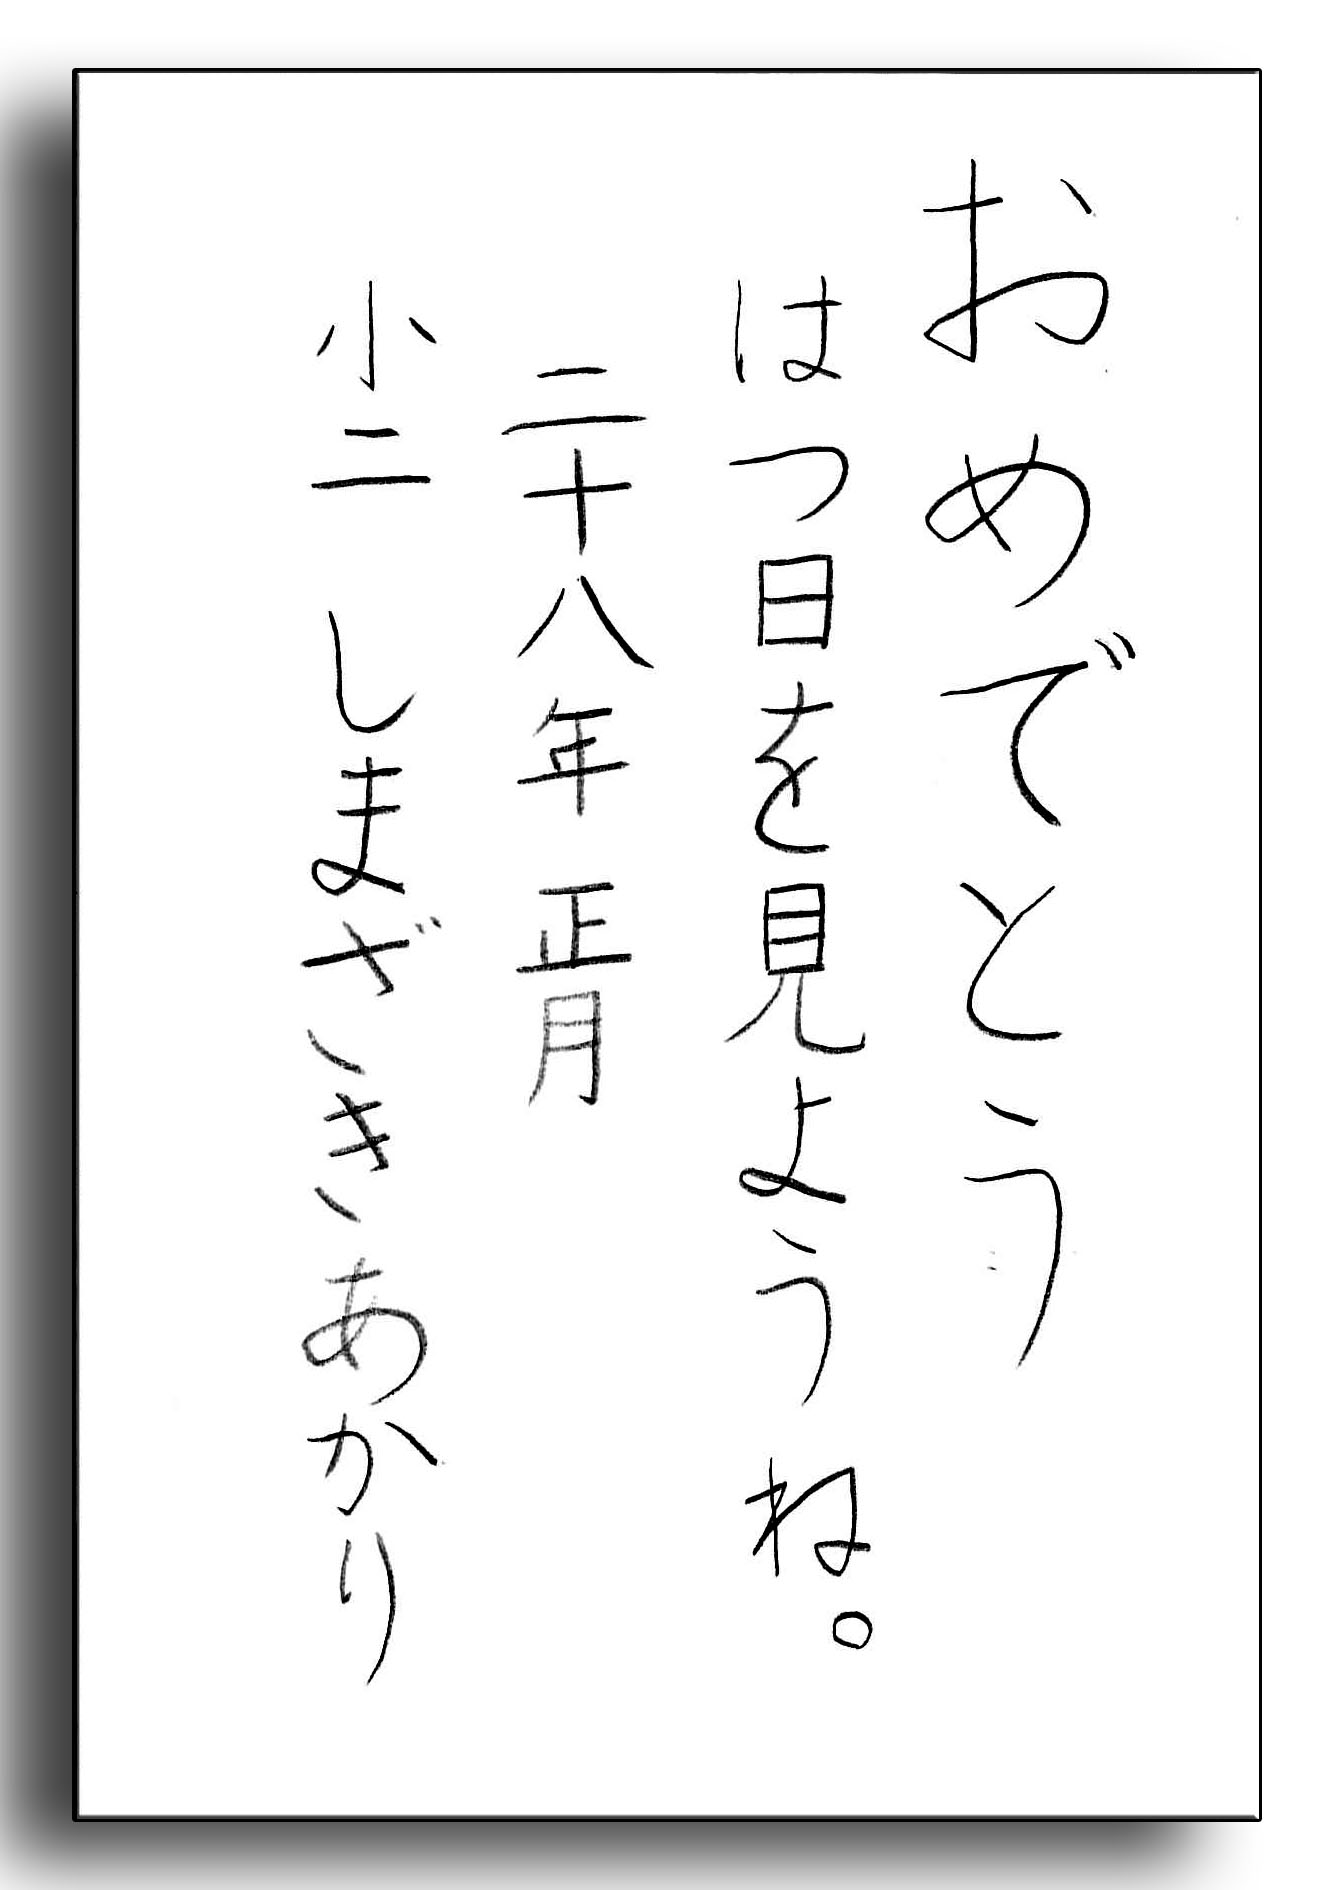 おめでとう
はつ日を見ようね。
二十八年 正月
小二 しまざきあかり